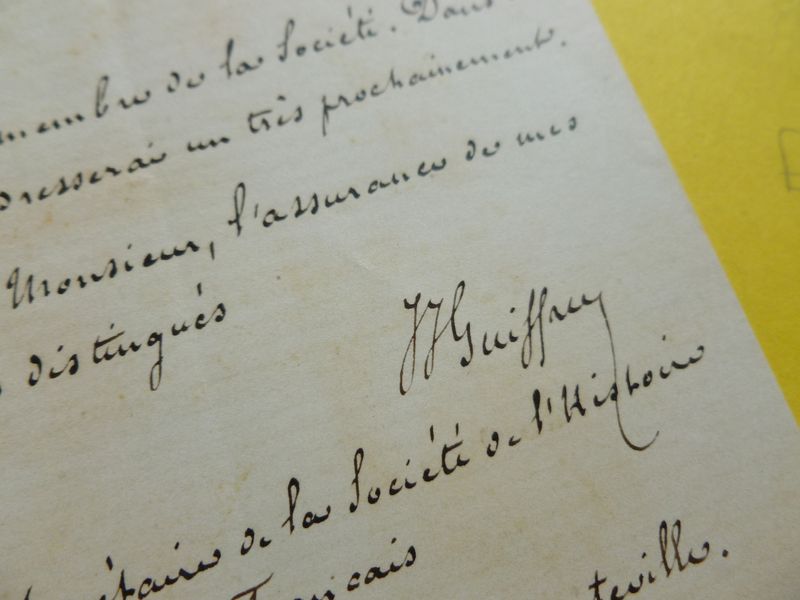 membre de la Société. Dans
dresserai un très prochainement.
Monsieur, l'assurance de mes
distingués
JJ Guiffrey
crétaire de la Société de l'Histoire
Français
teville.